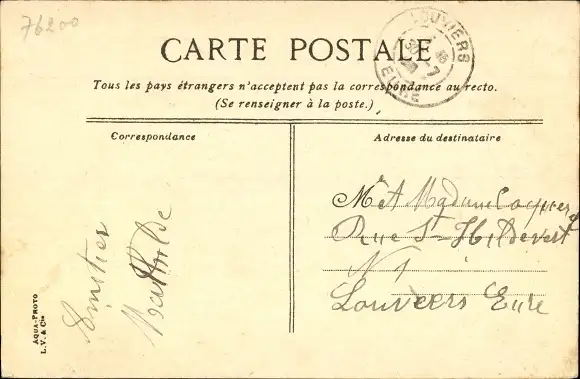 76200
CARTE POSTALE
Tous les pays étrangers n'acceptent pas la correspondance au recto.
(Se renseigner à la poste.)
LOUVIERS
EURE
Correspondance
Adresse du destinataire
Mr et Madame
Rue St-Hildevert
N 1
Louviers Eure
Mathilde
AQUA-PHOTO
L.V. & Cie